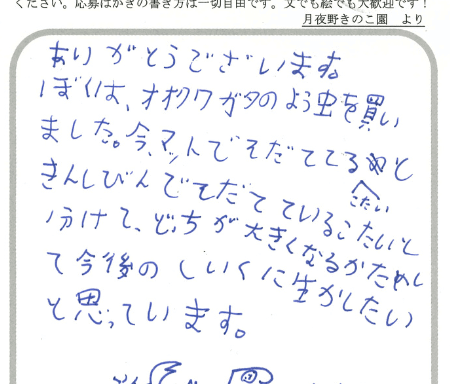 ください。応募はがきの書き方は一切自由です。文でも絵でも大歓迎です！
月夜野きのこ園　より
ありがとうございます。
ぼくは、オオクワガタのよう虫を買い
ました。今、マットでそだててると
きんしびんでそだてているこたいと
こたい
分けて、どっちが大きくなるかためし
て今後のしいくに生かしたい
と思っています。